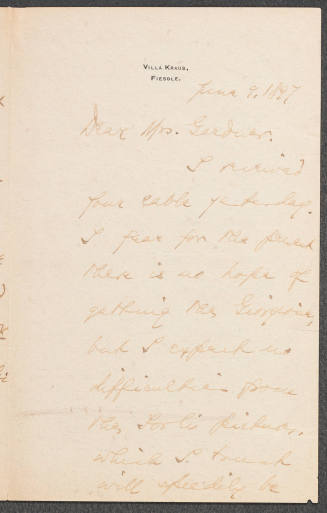 VILLA KRAUS,
FIESOLE.
June 9, 1897
Dear Mrs. Gardner.
I received
your cable yesterday.
I fear for the present
there is no hope of
getting the Giorgione,
but I expect no
difficulties from
the picture,
which I
will speedily be